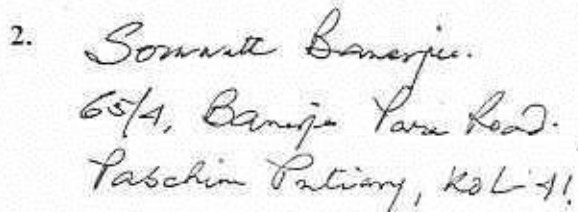 2. Somnath Banerjee.
65/4, Banerjee Para Road.
Paschim Putiary, KOL-41.